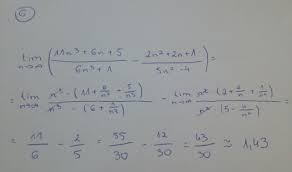 6
lim n→∞ (11n³+6n+5 / 6n³+1 - 2n²+2n+1 / 5n²-4) =
= lim n→∞ n³·(11+6/n²+5/n³) / n³·(6+1/n³) - lim n→∞ n²·(2+2/n+1/n²) / n²·(5-4/n²)
= 11/6 - 2/5 = 55/30 - 12/30 = 43/30 ≈ 1,43